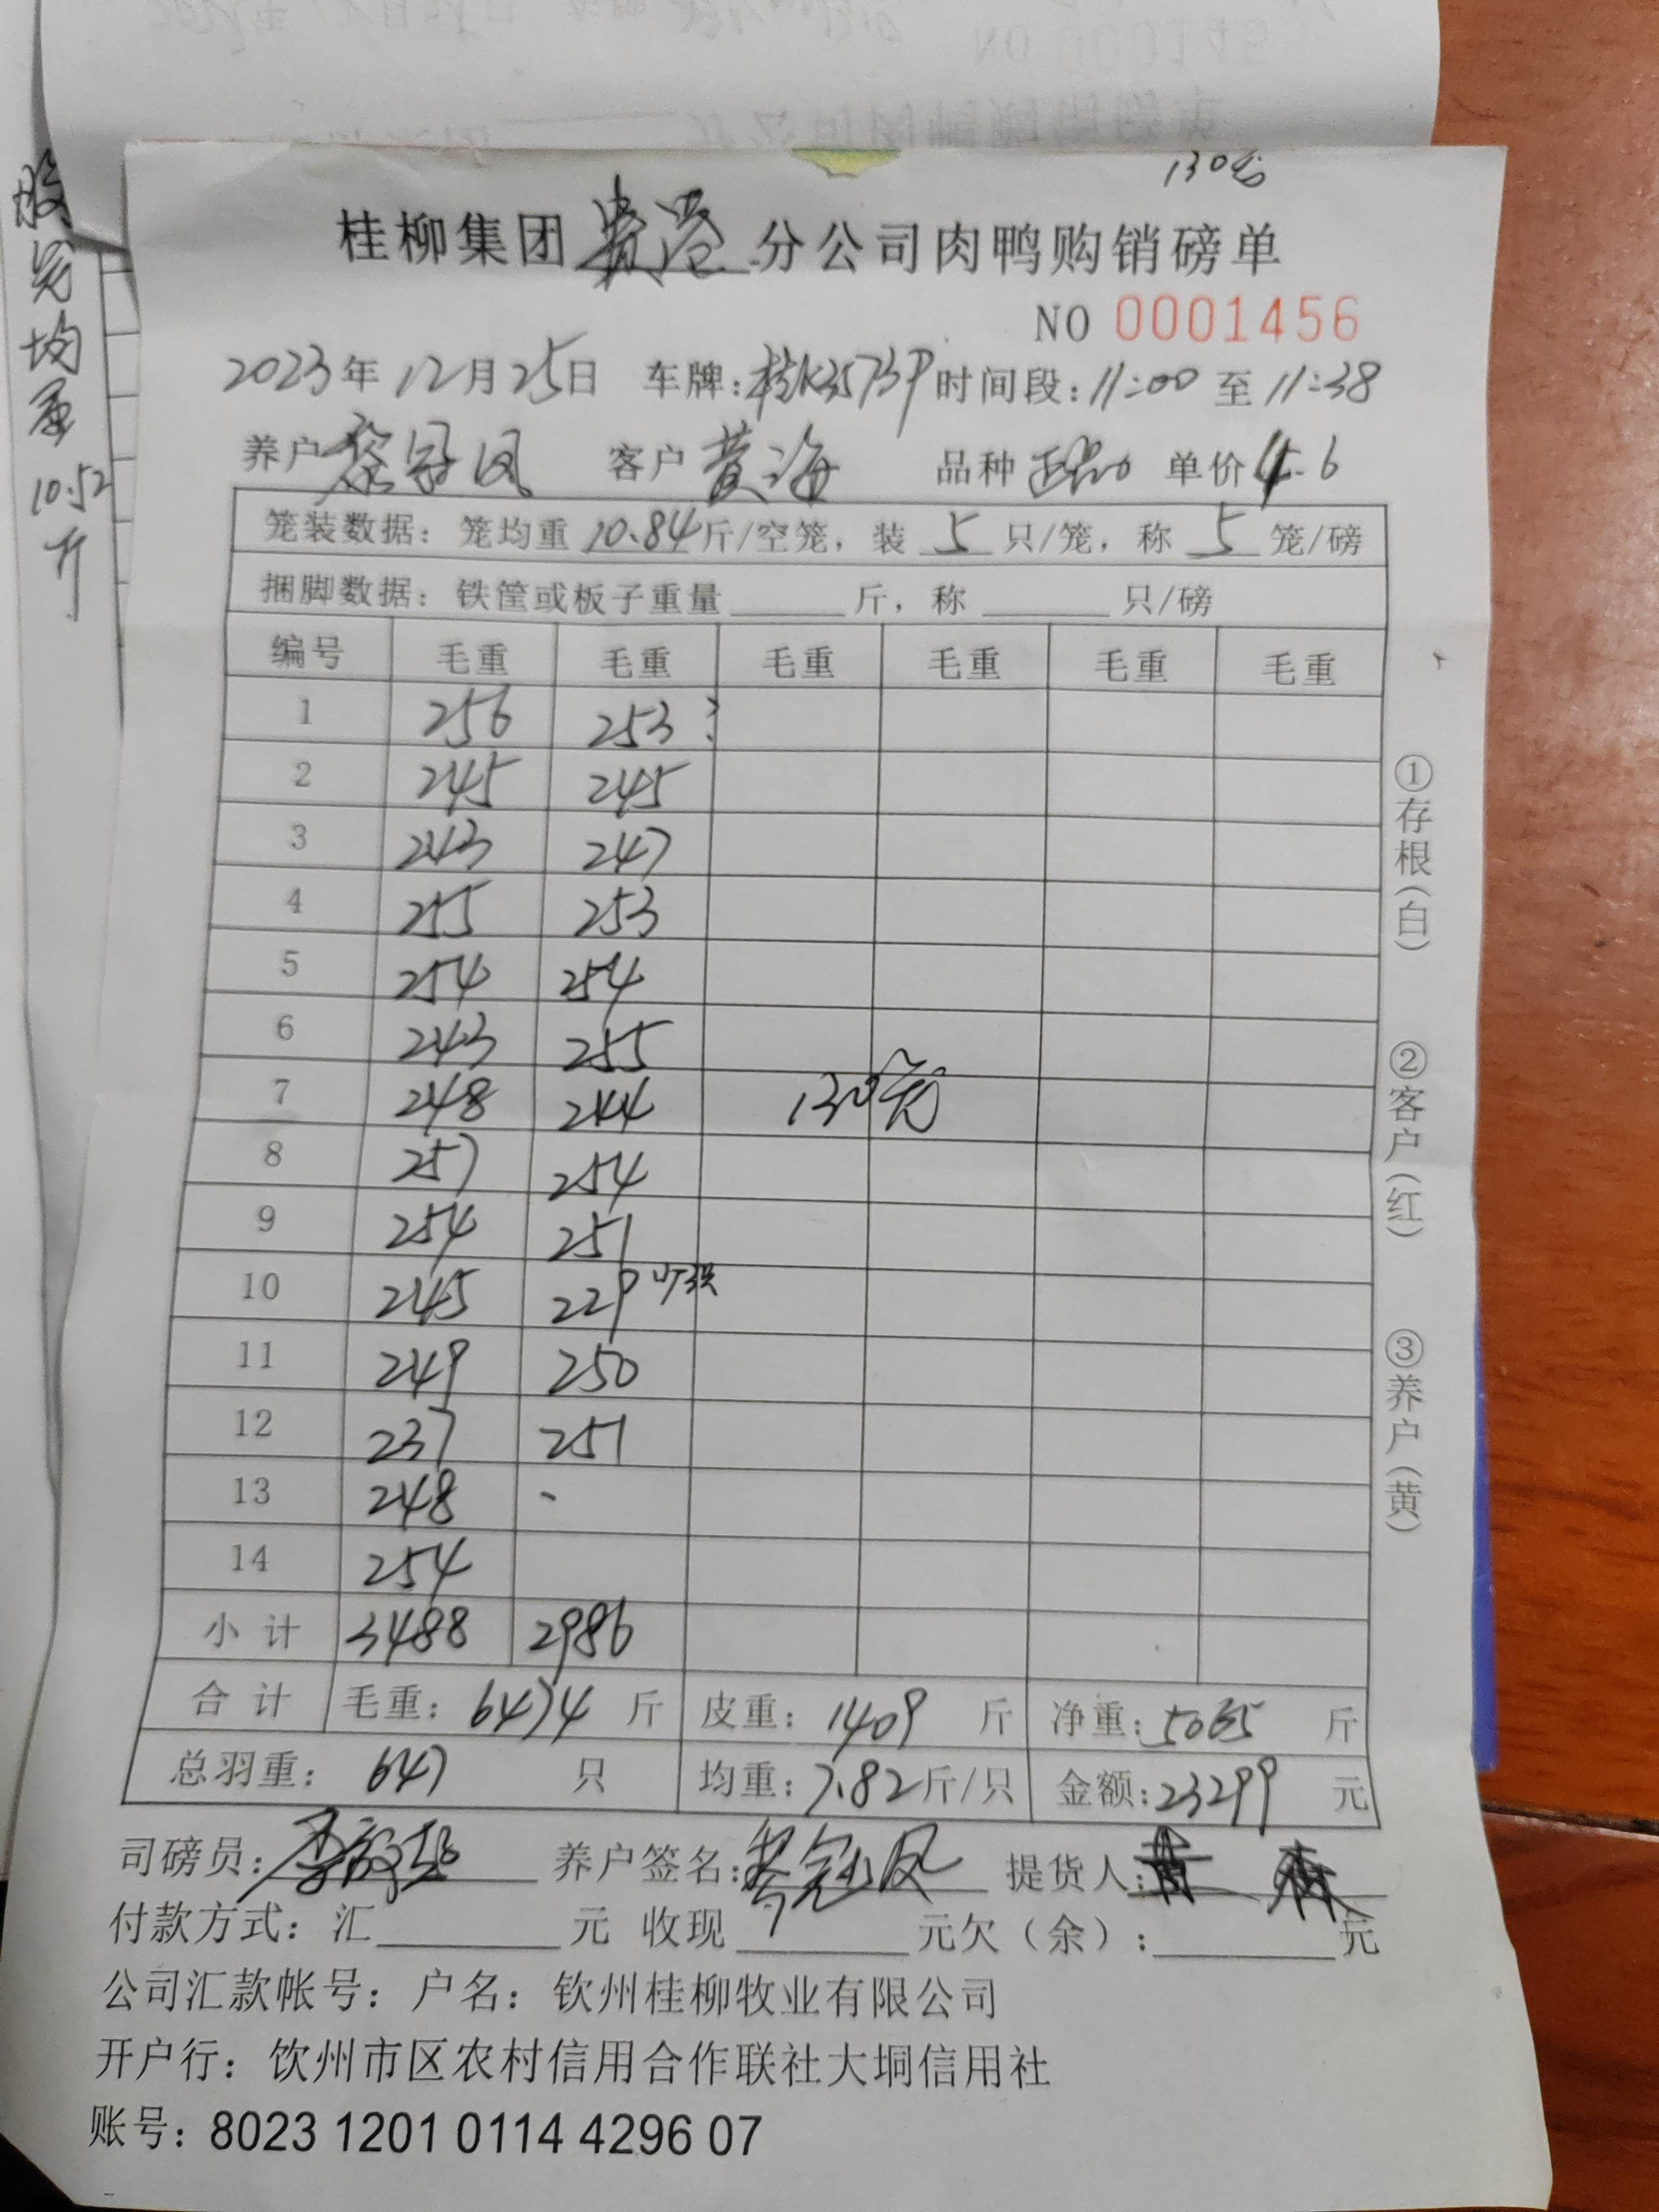 130笼
桂柳集团贵港分公司肉鸭购销磅单
NO 0001456
2023年12月25日 车牌:桂K3573P 时间段:11:00 至 11:38
养户 冠凤 客户 黄海 品种 单价4.6
笼装数据：笼均重10.84斤/空笼，装 5 只/笼，称 5 笼/磅
捆脚数据：铁筐或板子重量______斤，称______只/磅
编号 毛重 毛重 毛重 毛重 毛重 毛重
1 256 253
2 245 245
3 243 247
4 255 253
5 254 254
6 243 255
7 248 244 130笼
8 257 254
9 254 251
10 245 229
11 249 250
12 237 251
13 248 -
14 254
小计 3488 2986
合计 毛重：6474 斤 皮重：1409 斤 净重：5065 斤
总羽重：647 只 均重：7.82斤/只 金额：23299 元
司磅员： 养户签名： 冠凤 提货人：黄
付款方式：汇______元 收现______元欠（余）：______元
公司汇款帐号：户名：钦州桂柳牧业有限公司
开户行：饮州市区农村信用合作联社大垌信用社
账号：8023 1201 0114 4296 07
①存根(白) ②客户(红) ③养户(黄)
均重
10.52
斤